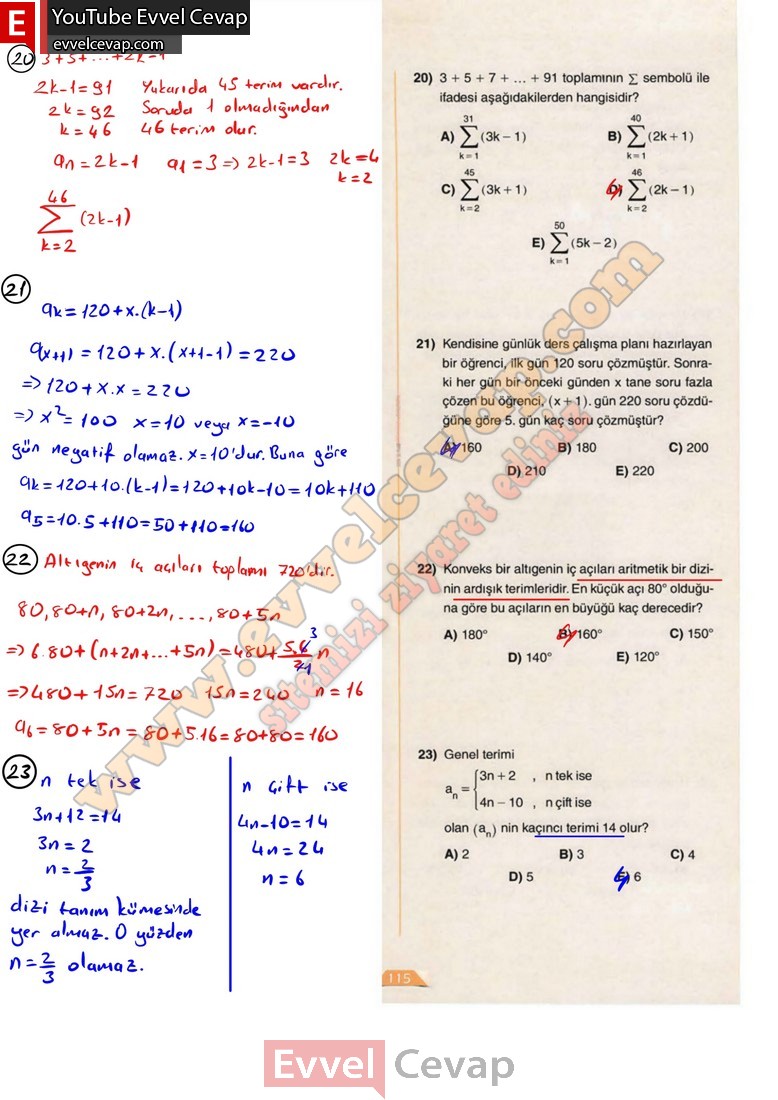 YouTube Evvel Cevap
evvelcevap.com
20 3+5+...+2k-1
2k-1=91 Yukarıda 45 terim vardır.
2k=92 Soruda 1 olmadığından
k=46 46 terim olur.
an=2k-1 a1=3=>2k-1=3 2k=4
k=2
46
∑ (2k-1)
k=2
21
ak=120+x.(k-1)
a(x+1)=120+x.(x+1-1)=220
=>120+x.x=220
=>x²=100 x=10 veya x=-10
gün negatif olamaz. x=10'dur. Buna göre
ak=120+10.(k-1)=120+10k-10=10k+110
a5=10.5+110=50+110=160
22 Altıgenin iç açıları toplamı 720'dir.
80, 80+n, 80+2n, ..., 80+5n
=>6.80+(n+2n+...+5n)=480+5.6/2 n
3
1
=>480+15n=720 15n=240 n=16
a6=80+5n=80+5.16=80+80=160
23 n tek ise
3n+12=14
3n=2
n=2/3
dizi tanım kümesinde
yer almaz. O yüzden
n=2/3 olamaz.
n çift ise
4n-10=14
4n=24
n=6
20) 3 + 5 + 7 + ... + 91 toplamının ∑ sembolü ile
ifadesi aşağıdakilerden hangisidir?
31 40
A) ∑ (3k − 1) B) ∑ (2k + 1)
k = 1 k = 1
45 46
C) ∑ (3k + 1) D) ∑ (2k − 1)
k = 2 k = 2
50
E) ∑ (5k − 2)
k = 1
21) Kendisine günlük ders çalışma planı hazırlayan
bir öğrenci, ilk gün 120 soru çözmüştür. Sonra-
ki her gün bir önceki günden x tane soru fazla
çözen bu öğrenci, (x + 1). gün 220 soru çözdü-
ğüne göre 5. gün kaç soru çözmüştür?
A) 160 B) 180 C) 200
D) 210 E) 220
22) Konveks bir altıgenin iç açıları aritmetik bir dizi-
nin ardışık terimleridir. En küçük açı 80° olduğu-
na göre bu açıların en büyüğü kaç derecedir?
A) 180° B) 160° C) 150°
D) 140° E) 120°
23) Genel terimi
3n + 2 , n tek ise
an =
4n − 10 , n çift ise
olan (an) nin kaçıncı terimi 14 olur?
A) 2 B) 3 C) 4
D) 5 E) 6
115
www.evvelcevap.com
sitemizi ziyaret ediniz
Evvel Cevap